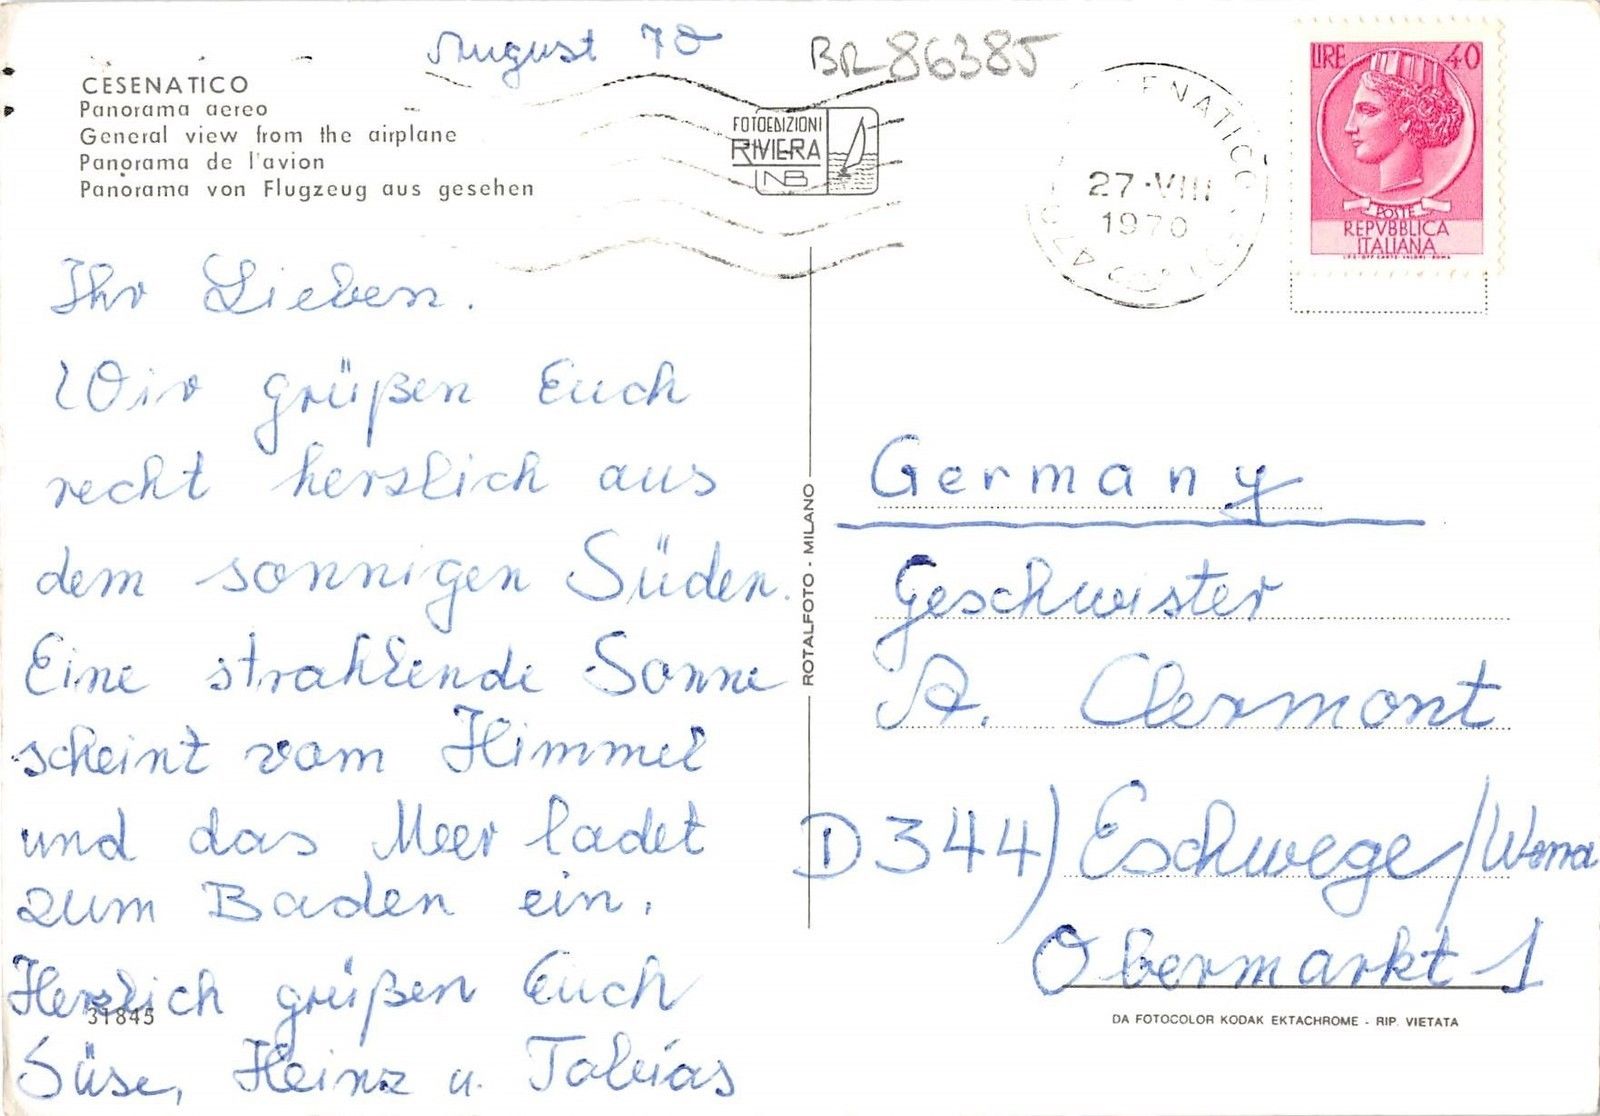 August 70
BR 86385
CESENATICO
Panorama aereo
General view from the airplane
Panorama de l'avion
Panorama von Flugzeug aus gesehen
FOTOEDIZIONI
RIVIERA
ENATICO
27·VIII
1970
LIRE 40
POSTE
REPVBBLICA
ITALIANA
Ihr Lieben.
Wir grüßen Euch
recht herzlich aus
dem sonnigen Süden.
Eine strahlende Sonne
scheint vom Himmel
und das Meer ladet
zum Baden ein.
Herzlich grüßen Euch
31845
Süse, Heinz u. Tobias
ROTALFOTO - MILANO
Germany
Geschwister
A. Clermont
D 344) Eschwege/Werra
Obermarkt 1
DA FOTOCOLOR KODAK EKTACHROME - RIP. VIETATA